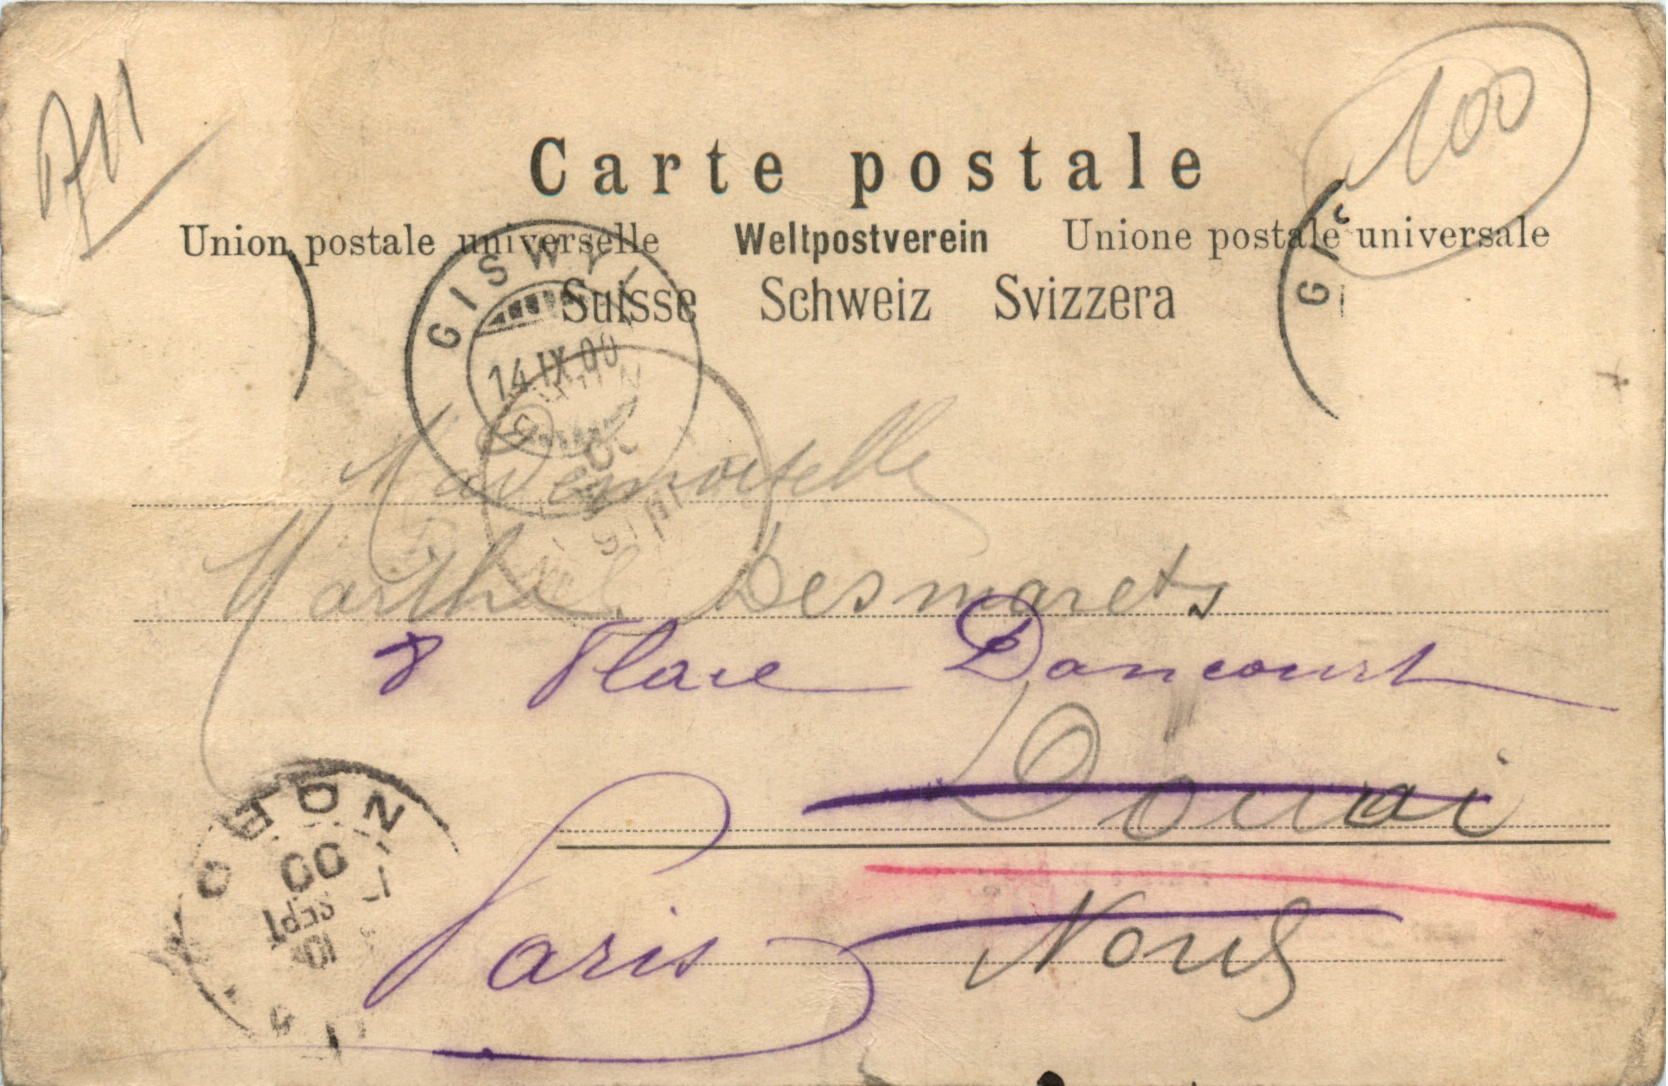 100
Carte postale
Union postale universelle Weltpostverein Unione postale universale
Suisse Schweiz Svizzera
GISWYL
14.IX.00
GI
Mademoiselle
Marthe Desmarets
8 Place Dancourt
Douai
Paris
Nord
00
SEPT